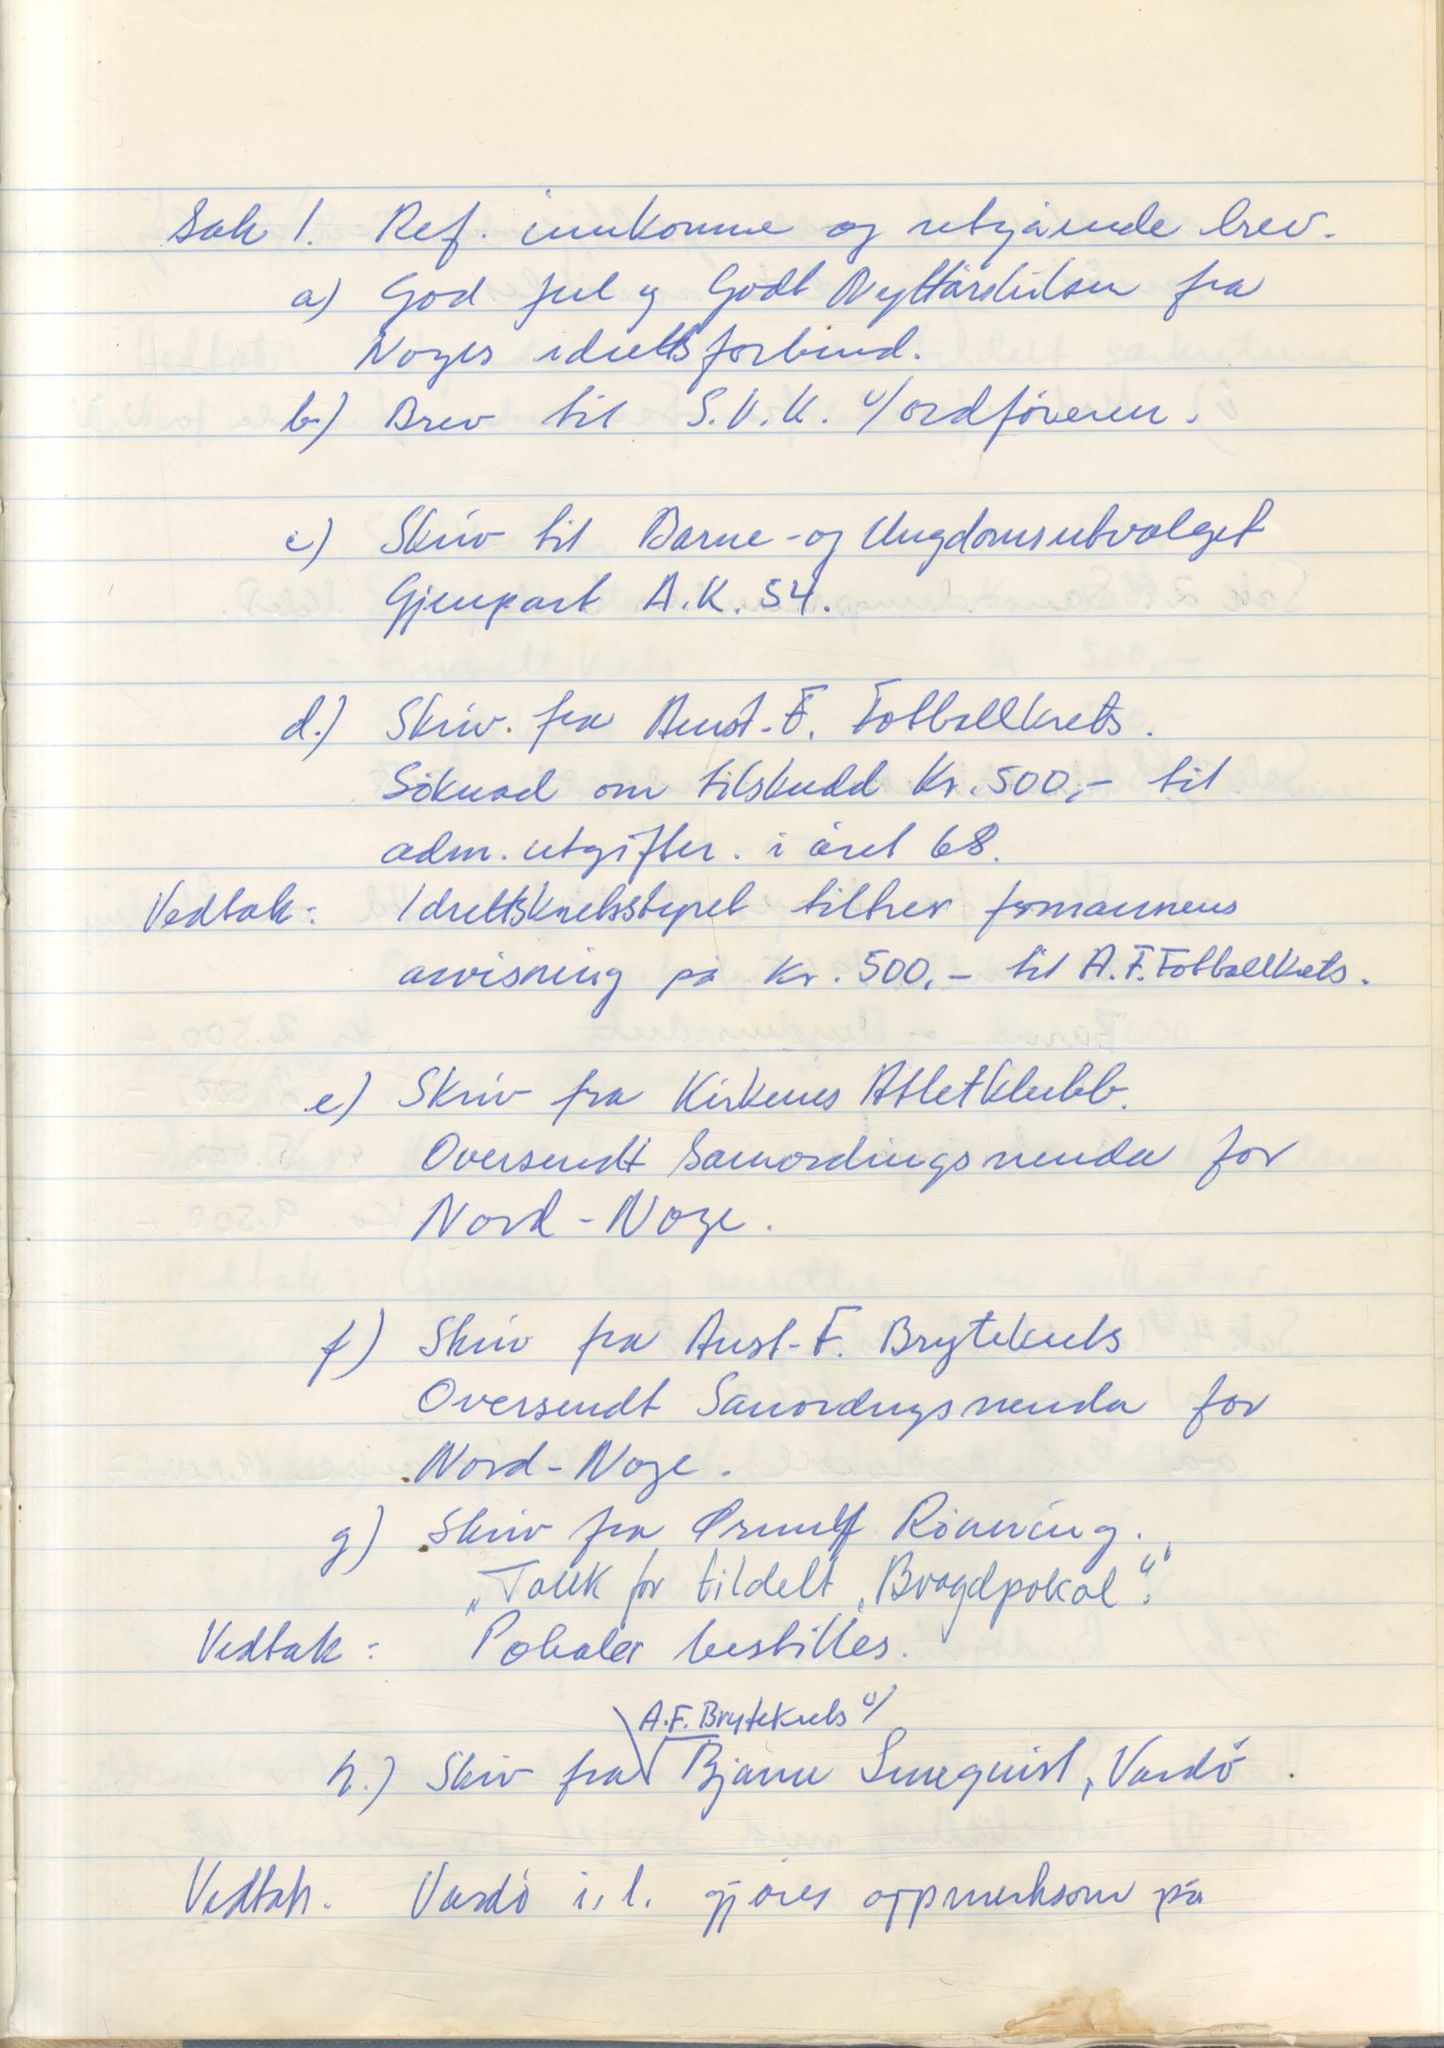 Sak 1. Ref. innkomne og utgående brev.
a) God jul og Godt Nyttårshilsen fra
Noges idrettsforbund.
b.) Brev til S.V.K. v/ordføreren.
c) Skriv til Barne- og Ungdomsutvalget
Gjenpart A.K. 54.
d.) Skriv. fra Aust-F. Fotballkrets.
Söknad om tilskudd Kr. 500,- til
adm. utgifter. i året 68.
Vedtak: Idrettskretsstyret tiltrer formannens
anvisning på Kr. 500,- til A.F. Fotballkrets.
e) Skriv fra Kirkenes Atletklubb.
Oversendt Samordingsnenda for
Nord-Noge.
f) Skriv fra Aust-F. Brytekrets
Oversendt Samordngsnenda for
Nord-Noge.
g) Skriv fra Ørnulf Rönning.
„Takk for tildelt „Bragdpokal“.“
Vedtak: Pokaler bestilles.
A.F. Brytekrets v/
h.) Skriv fra Bjarne Smequist, Vardö.
Vedtak. Vardö i.l. gjöres oppmerksom på